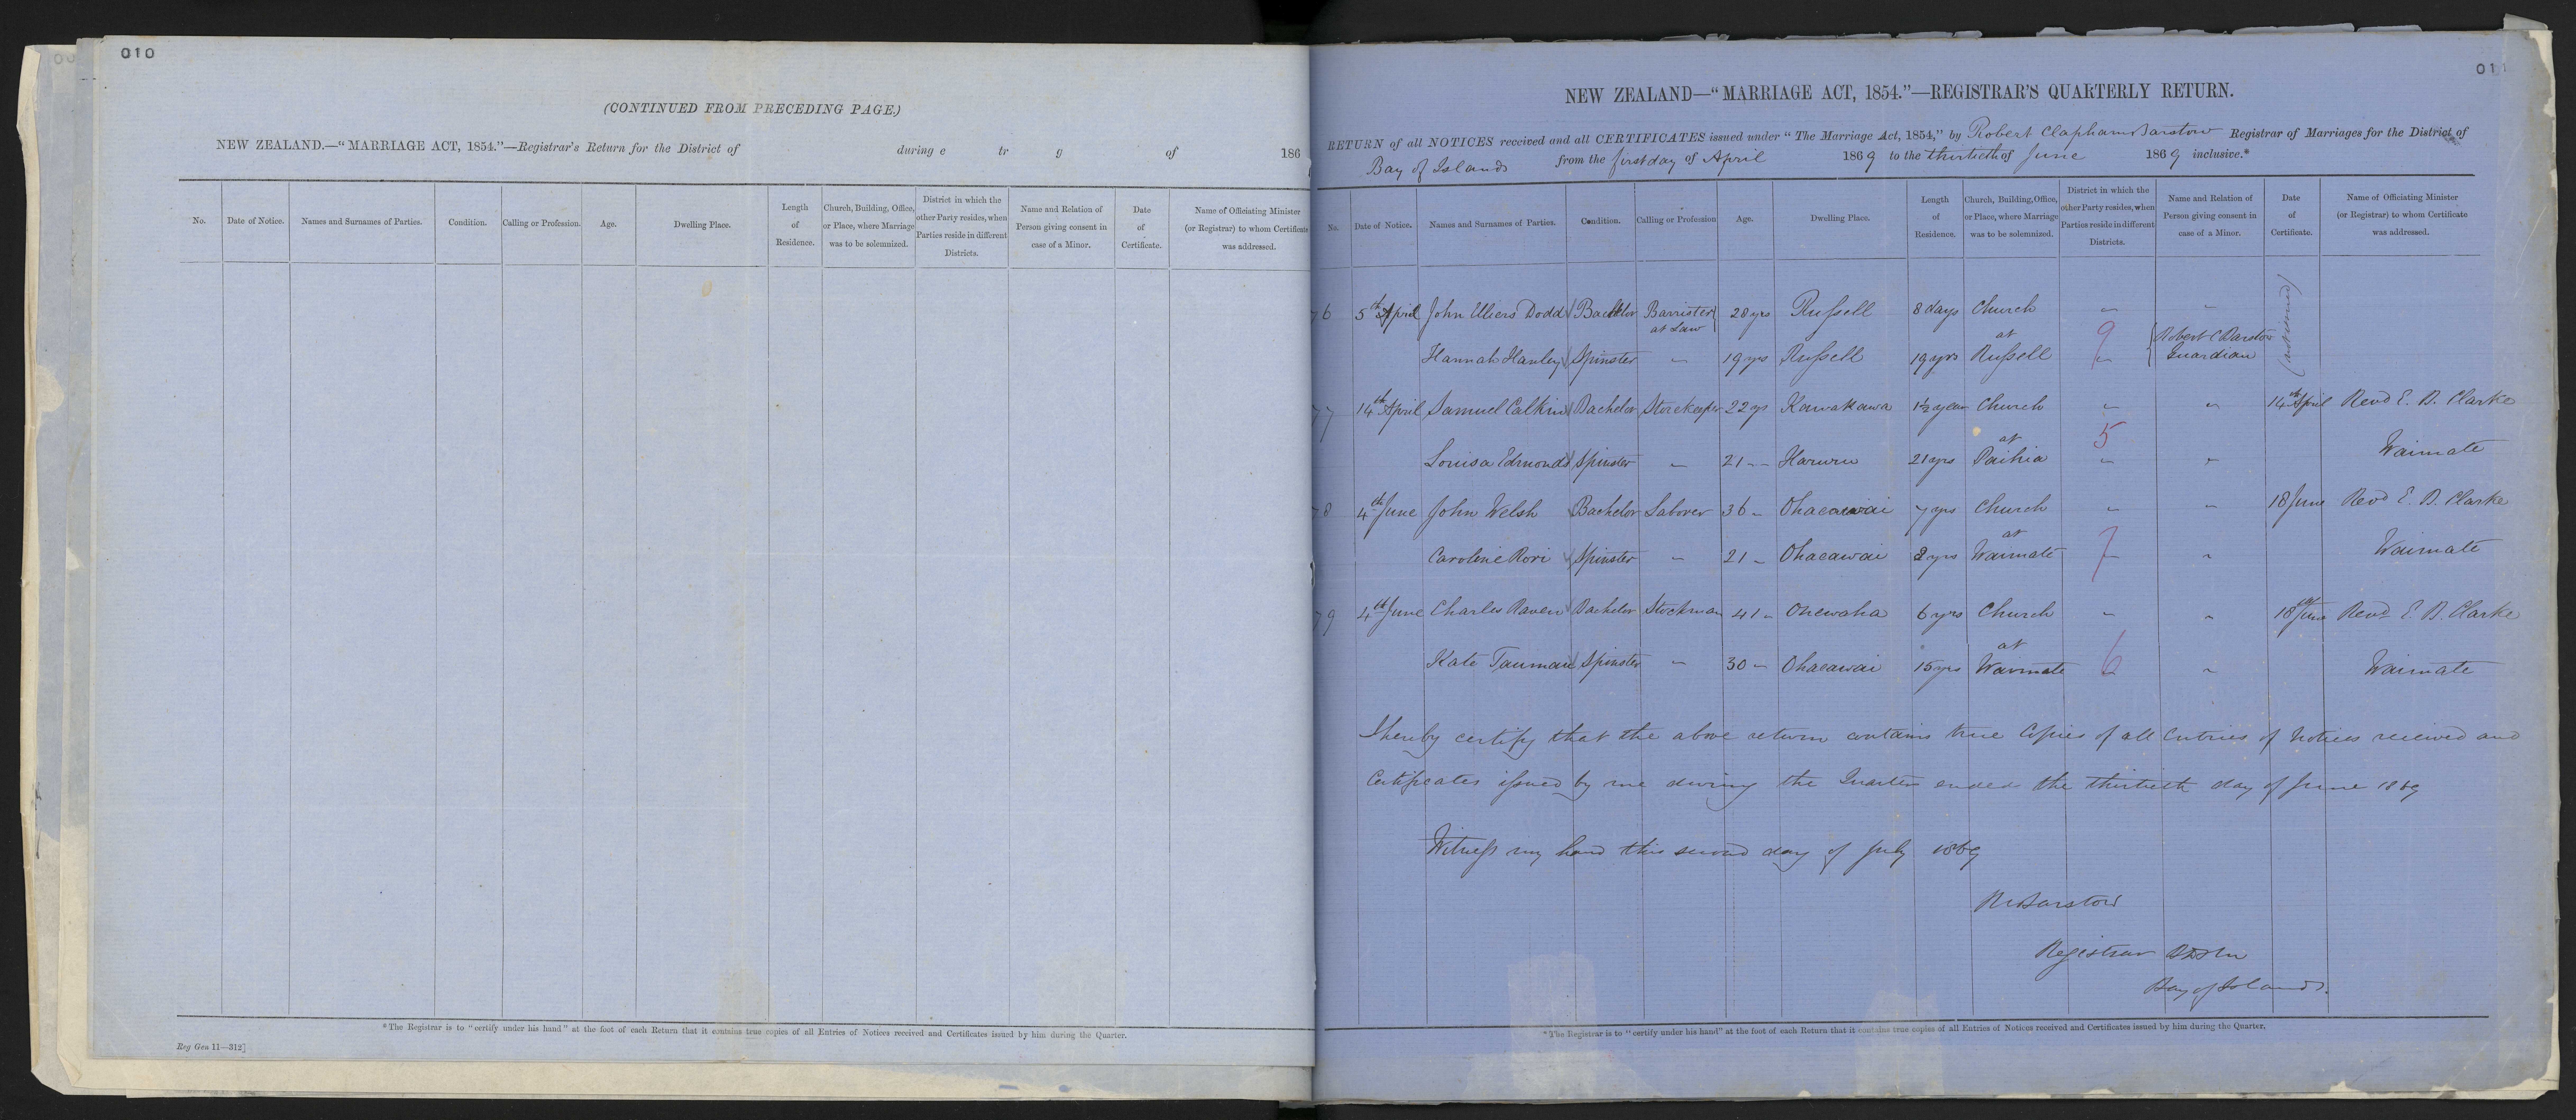 010
(CONTINUED FROM PRECEDING PAGE.)
NEW ZEALAND.—"MARRIAGE ACT, 1854."—Registrar's Return for the District of during e tr g of 186
No. Date of Notice. Names and Surnames of Parties. Condition. Calling or Profession. Age. Dwelling Place. Length of Residence. Church, Building, Office, or Place, where Marriage was to be solemnized. District in which the other Party resides, when Parties reside in different Districts. Name and Relation of Person giving consent in case of a Minor. Date of Certificate. Name of Officiating Minister (or Registrar) to whom Certificate was addressed.
*The Registrar is to "certify under his hand" at the foot of each Return that it contains true copies of all Entries of Notices received and Certificates issued by him during the Quarter.
Reg Gen 11—312]
011
NEW ZEALAND—"MARRIAGE ACT, 1854."—REGISTRAR'S QUARTERLY RETURN.
RETURN of all NOTICES received and all CERTIFICATES issued under "The Marriage Act, 1854," by Robert Clapham Barstow Registrar of Marriages for the District of
Bay of Islands from the first day of April 1869 to the thirtieth of June 1869 inclusive.*
No. Date of Notice. Names and Surnames of Parties. Condition. Calling or Profession Age. Dwelling Place. Length of Residence. Church, Building, Office, or Place, where Marriage was to be solemnized. District in which the other Party resides, when Parties reside in different Districts. Name and Relation of Person giving consent in case of a Minor. Date of Certificate. Name of Officiating Minister (or Registrar) to whom Certificate was addressed.
76 5th April John Dodd Bachelor Barrister at Law 28 yrs Russell 8 days Church " "
at 9 Robert C Barstow
Hannah Hanley Spinster " 19 yrs Russell 19 yrs Russell " Guardian
77 14th April Samuel Calkin Bachelor Storekeeper 22 yrs Kawakawa 1½ year Church " " 14th April Revd E. B. Clarke
at 5
Louisa Edmonds Spinster " 21 " Haruru 21 yrs Paihia " " Waimate
78 4th June John Welsh Bachelor Laborer 36 " Ohaeawai 7 yrs Church " " 18 June Revd E. B. Clarke
at 7
Caroline Rori Spinster " 21 " Ohaeawai 2 yrs Waimate " " Waimate
79 4th June Charles Raven Bachelor Stockman 41 " Onewaha 6 yrs Church " " 18th June Revd E. B. Clarke
at 6
Kate Tauman Spinster " 30 " Ohaeawai 15 yrs Waimate " " Waimate
I hereby certify that the above return contains true Copies of all Entries of Notices received and
Certificates issued by me during the Quarter ended the thirtieth day of June 1869
Witness my hand this second day of July 1869
R Barstow
Registrar
Bay of Islands.
*The Registrar is to "certify under his hand" at the foot of each Return that it contains true copies of all Entries of Notices received and Certificates issued by him during the Quarter.